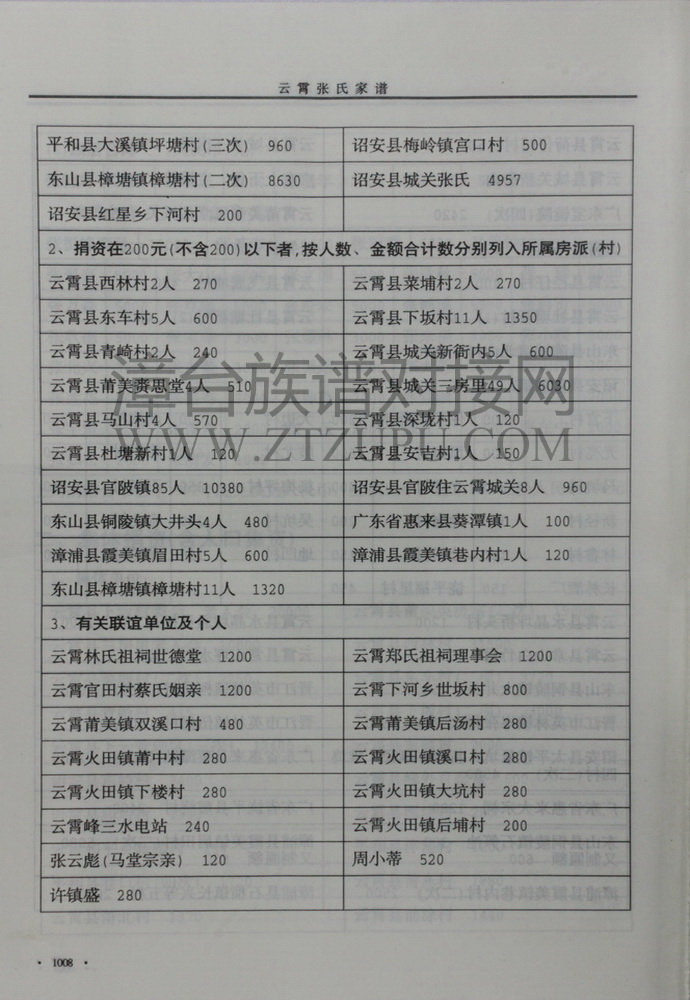 云霄张氏家谱
平和县大溪镇坪塘村(三次) 960 诏安县梅岭镇宫口村 500
东山县樟塘镇樟塘村(二次) 8630 诏安县城关张氏 4957
诏安县红星乡下河村 200
2、捐资在200元(不含200)以下者,按人数、金额合计数分别列入所属房派(村)
云霄县西林村2人 270 云霄县菜埔村2人 270
云霄县东车村5人 600 云霄县下坂村11人 1350
云霄县青崎村2人 240 云霄县城关新衙内5人 600
云霄县莆美赉思堂4人 510 云霄县城关三房里49人 6030
云霄县马山村4人 570 云霄县深垅村1人 120
云霄县杜塘新村1人 120 云霄县安吉村1人 150
诏安县官陂镇85人 10380 诏安县官陂住云霄城关8人 960
东山县铜陵镇大井头4人 480 广东省惠来县葵潭镇1人 100
漳浦县霞美镇眉田村5人 600 漳浦县霞美镇巷内村1人 120
东山县樟塘镇樟塘村11人 1320
3、有关联谊单位及个人
云霄林氏祖祠世德堂 1200 云霄郑氏祖祠理事会 1200
云霄官田村蔡氏姻亲 1200 云霄下河乡世坂村 800
云霄莆美镇双溪口村 480 云霄莆美镇后汤村 280
云霄火田镇莆中村 280 云霄火田镇溪口村 280
云霄火田镇下楼村 280 云霄火田镇大坑村 280
云霄峰三水电站 240 云霄火田镇后埔村 200
张云彪(马堂宗亲) 120 周小蒂 520
许镇盛 280
· 1008 ·
漳台族谱对接网
WWW.ZTZUPU.COM